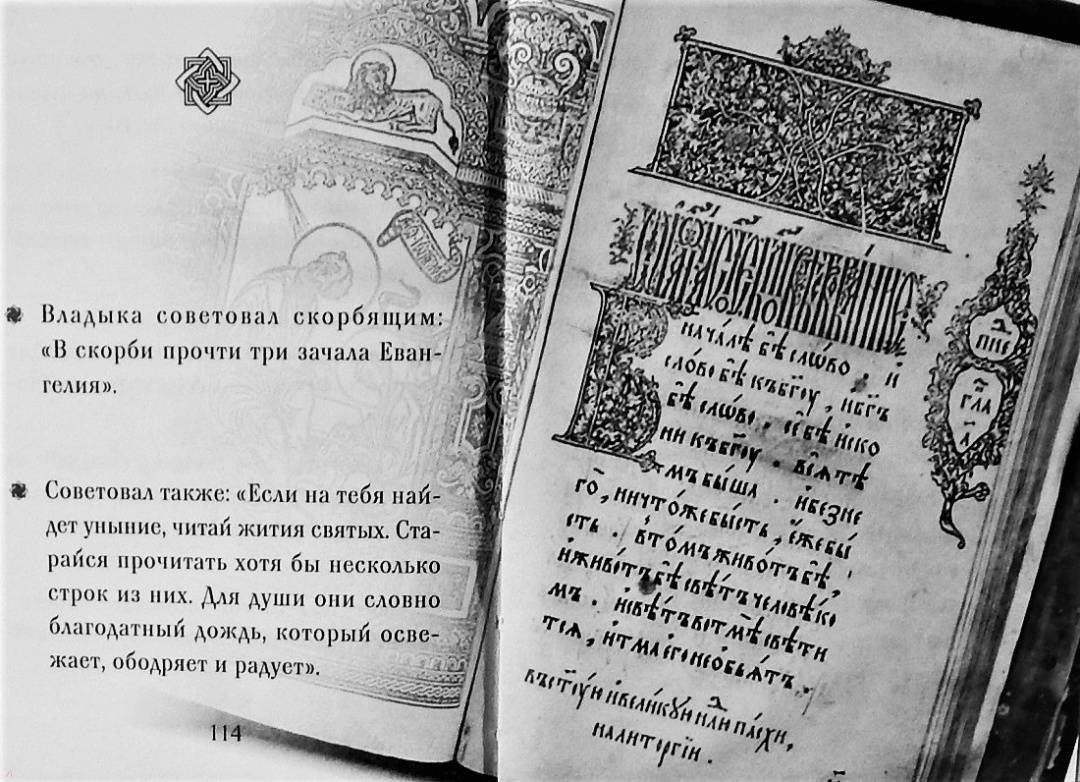 Владыка советовал скорбящим:
«В скорби прочти три зачала Еван-
гелия».
Советовал также: «Если на тебя най-
дет уныние, читай жития святых. Ста-
райся прочитать хотя бы несколько
строк из них. Для души они словно
благодатный дождь, который осве-
жает, ободряет и радует».
114
начáлѣ бѣ̀ слѡ́во . и҆
слóво бѣ̀ къ бг҃ꙋ , и҆ бг҃ъ
бѣ̀ слѡ́во . се́ бѣ̀ и҆ско
ни къ бг҃оу . всѧ̑ тѣ
мъ бы́ша . и҆ безне
гѡ̀ , ничто́же бы́сть , є҆́же бы́
сть . в то́мъ живо́тъ бѣ̀ ,
и҆ живо́тъ бѣ̀ свѣ́тъ человѣ́ко
мъ . и҆ свѣ́тъ во тмѣ̀ свѣ́ти
тсѧ , и҆ тма̀ є҆го̀ не ѡ҆бъѧ́тъ .
въ ст҃ꙋю и҆ вели́кꙋю нд҃лю па́схи ,
на литоргі́и .